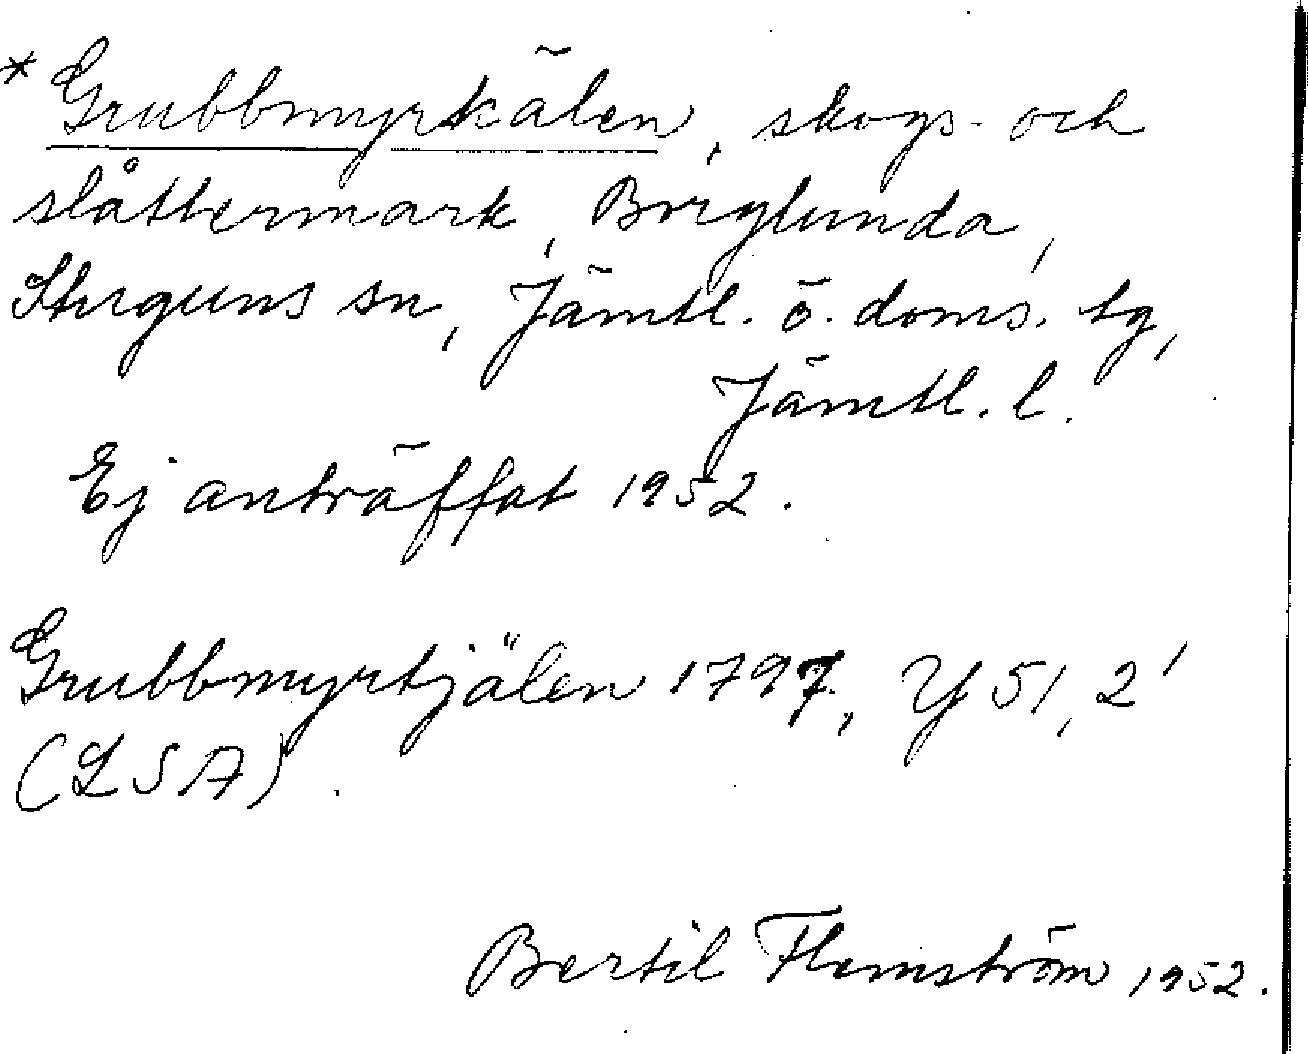 * Grubbmyrkälen, skogs- och
slåttermark, Borglunda,
Stuguns sn, Jämtl. ö. doms. tg,
Jämtl. l.
Ej anträffat 1952.
Grubbmyrtjälen 1797, Y 51, 2'
(LSA).
Bertil Flemström 1952.